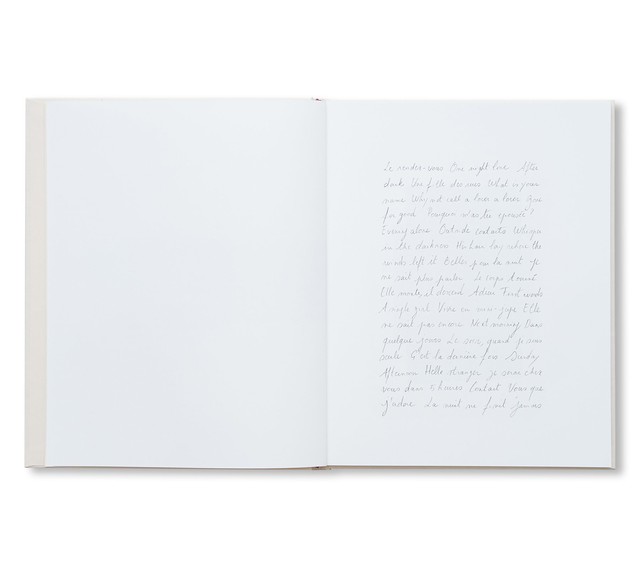 Le rendez-vous One night love After
dark Une fille des rues What is your
name Why not call a loser a loser Gone
for good Pourquoi
Every alone Outside contacts Whisper
in the darkness He
words left et Belles pour la nuit Je
ne sait plus parler Le corps tourné
Elle monte, et descend Adieu First words
A single girl Vivre en mini-jupe Elle
ne sait pas encore Next morning Dans
quelques jours Le soir, quand je suis
seule C'est la dernière fois Sunday
Afternoon Hello stranger je serai chez
vous dans 2 heures Contact Vous que
j'adore La nuit ne finit jamais